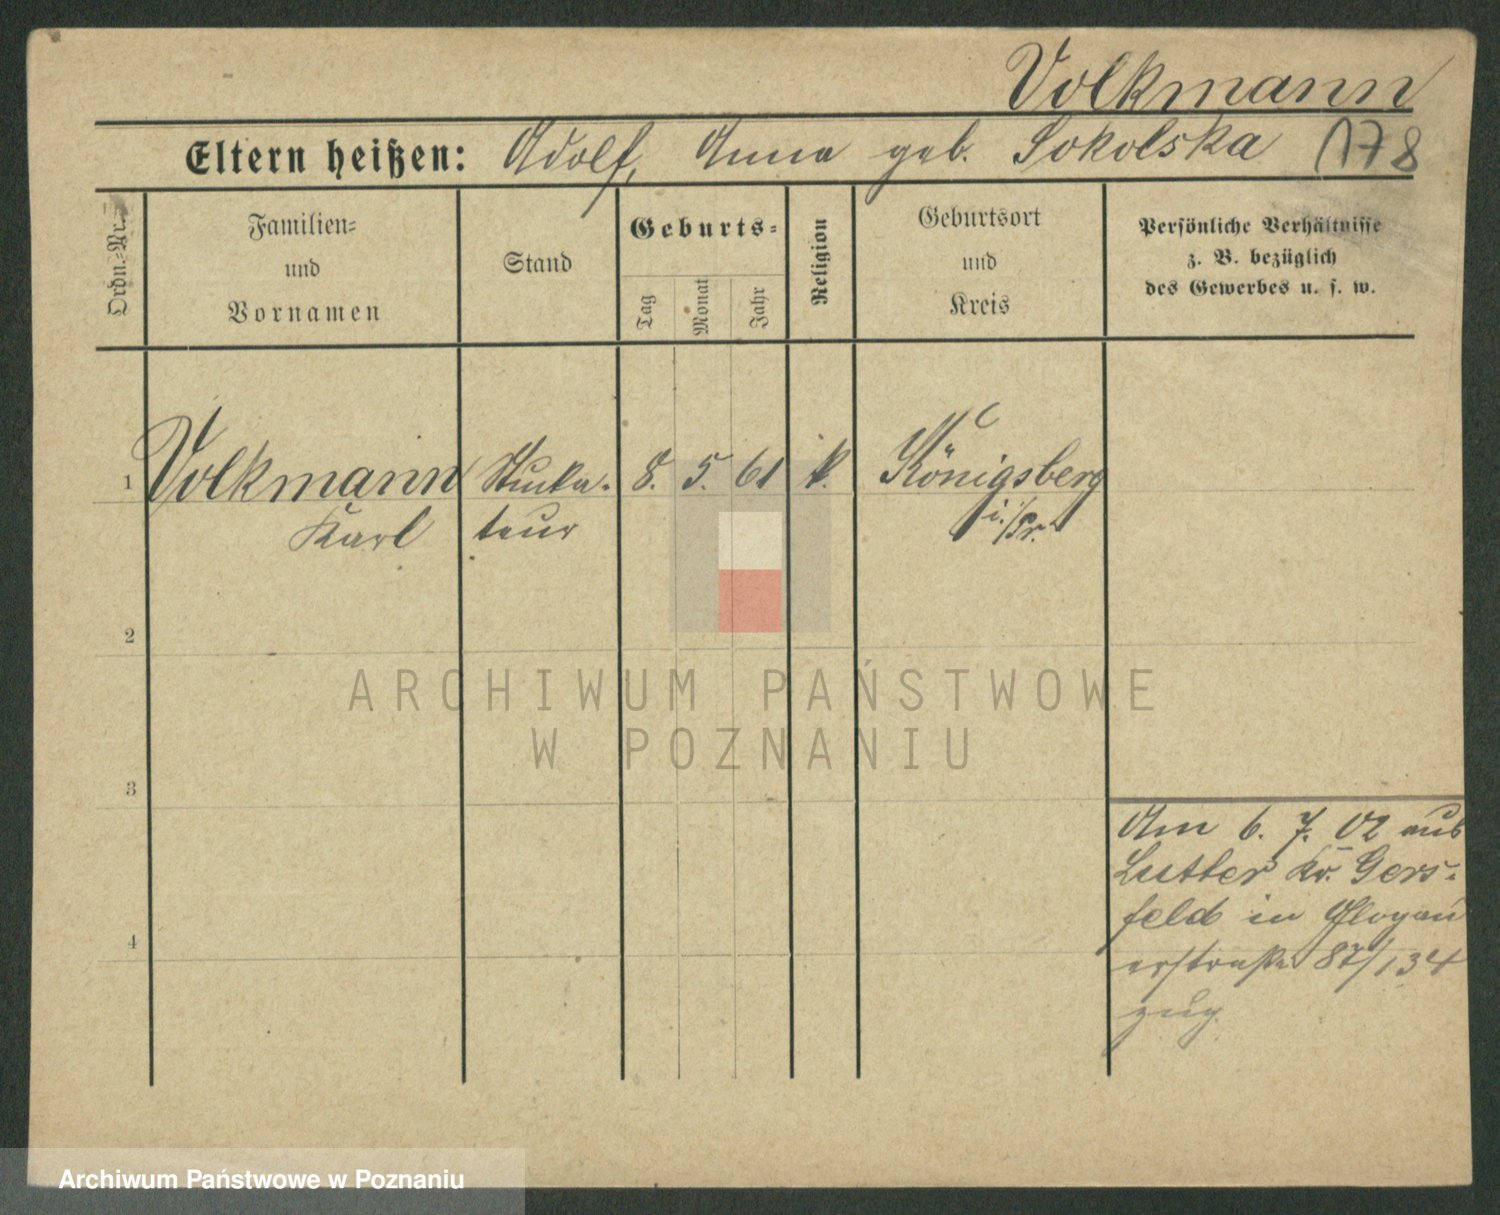 Volkmann
Eltern heißen: Adolf, Anna geb. Sokolska 178
Ordn.-Nr.
Familien-
und
Vornamen
Stand
Geburts-
Tag
Monat
Jahr
Religion
Geburtsort
und
Kreis
Persönliche Verhältnisse
z. B. bezüglich
des Gewerbes u. s. w.
1 Volkmann Stucka- 8. 5. 61 k. Königsberg
Karl teur i./Pr.
2
3
4
Am 6. 7. 02 aus
Lutter Kr. Gers-
feld in Glogau
erstraße 87/134
zug.
ARCHIWUM PAŃSTWOWE
W POZNANIU
Archiwum Państwowe w Poznaniu